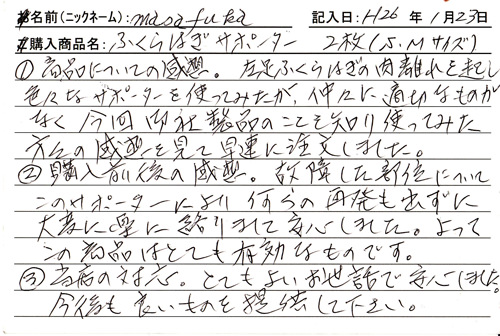 お名前(ニックネーム): masafuka 記入日: H26 年 1月23日
ご購入商品名: ふくらはぎサポーター 2枚(S.Mサイズ)
① 商品についての感想。左足ふくらはぎの肉離れを起し
色々なサポーターを使ってみたが、仲々に適切なものが
なく今回御社製品のことを知り使ってみた
方々の感想を見て早速に注文しました。
② 購入前後の感想。故障した部位について
このサポーターにより何らの再発も出ずに
大変に楽に過りまして安心しました。よって
この商品はとても有効なものです。
③ 当店の対応。とてもよいお世話で安心しました。
今後も良いものを提供して下さい。